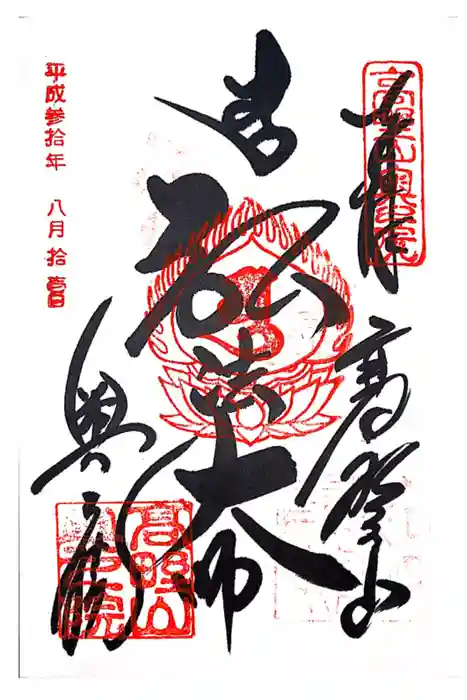 奉拝
高野山
高野山奥之院
弘法大師
奥之院
高野山
奥之院
平成参拾年 八月 拾壱日